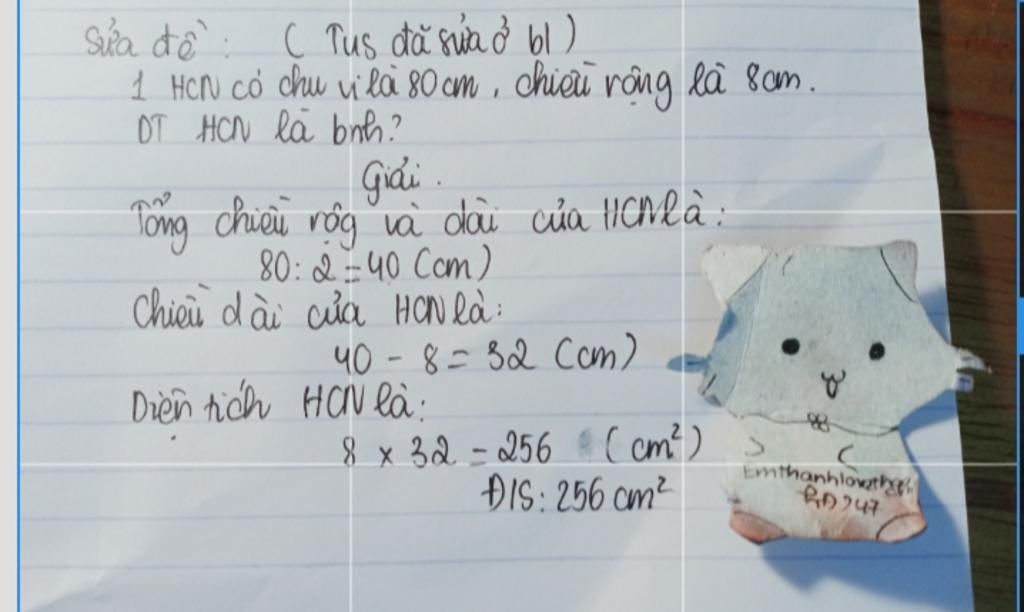 Sửa đề: ( Tus đã sửa ở bl )
1 HCN có chu vi là 80cm, chiều rộng là 8cm.
DT HCN là bnh?
Giải.
Tổng chiều rộg và dài của HCN là:
80: 2 = 40 (cm)
Chiều dài của HCN là:
40 - 8 = 32 (cm)
Diện tích HCN là:
8 x 32 = 256 (cm²)
Đ/S: 256 cm²